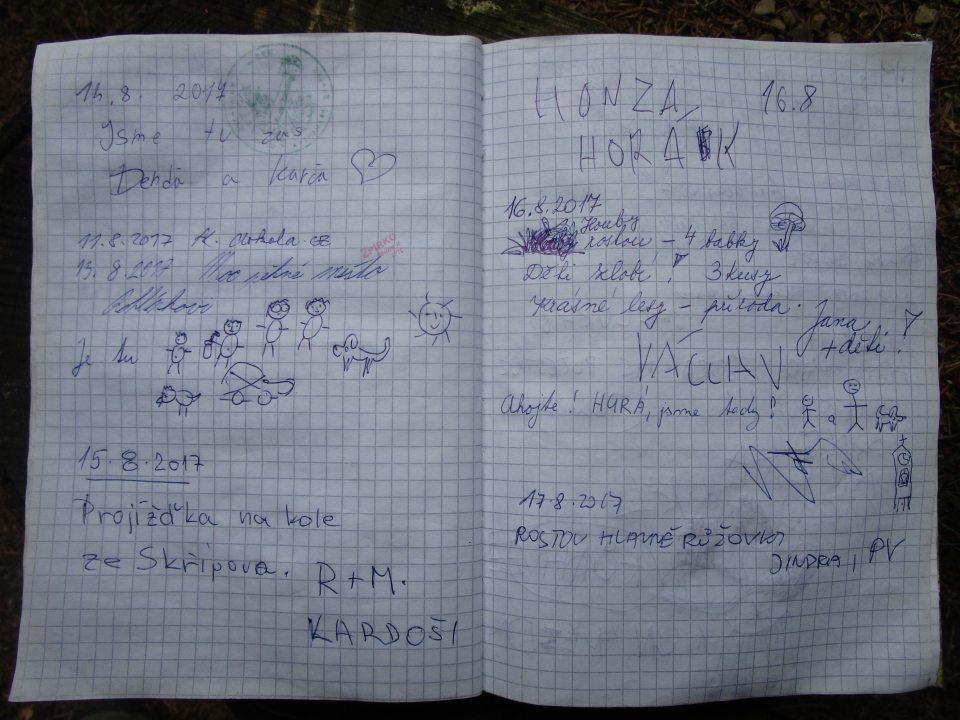 14.8. 2017
Jsme tu zas
Denda a Karča
11.8.2017
13.8.2017 Moc pěkné místo
Je tu
15.8.2017
Projížďka na kole
ze Skřipova.
R+M.
KARDOŠI
HONZA, 16.8
HORÁK
16.8.2017
Houby
rostou – 4 babky
Děti zlobí! 3 kusy
Krásné lesy – příroda.
Jana
+děti!
VÁCLAV
Ahojte! HURÁ, jsme tady! a
17.8.2017
ROSTOU HLAVNĚ RŮŽOVKY
JINDRA, PV